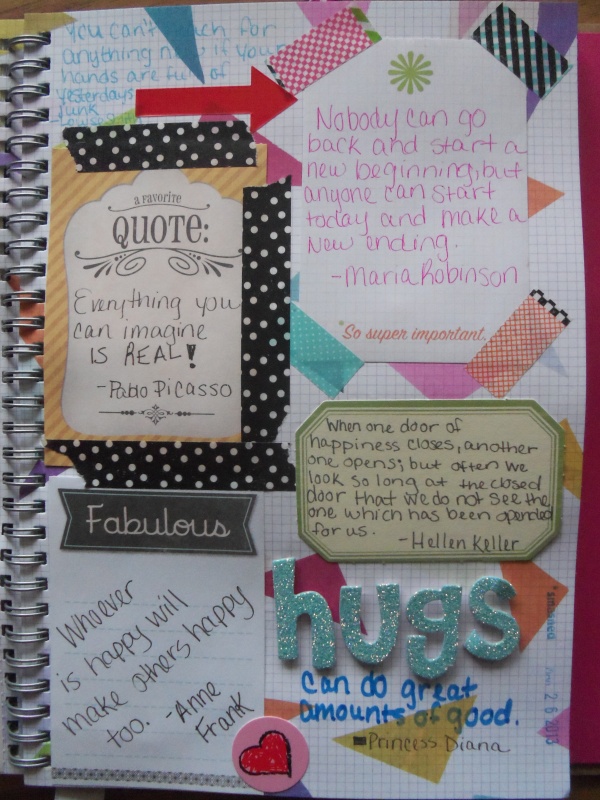 You can't reach for
anything new if your
hands are full of
Yesterdays
Junk
Nobody can go
back and start a
new beginning, but
anyone can start
today and make a
New ending.
-Maria Robinson
*So super important.
a FAVORITE
QUOTE:
Everything you
can imagine
IS REAL!
-Pablo Picasso
When one door of
happiness closes, another
one opens; but often we
look so long at the closed
door that we do not see the
one which has been opended
for us.
-Hellen Keller
Fabulous
Whoever
is happy will
make others happy
too. -Anne
Frank
hugs
can do great
amounts of good.
Princess Diana
26 2013